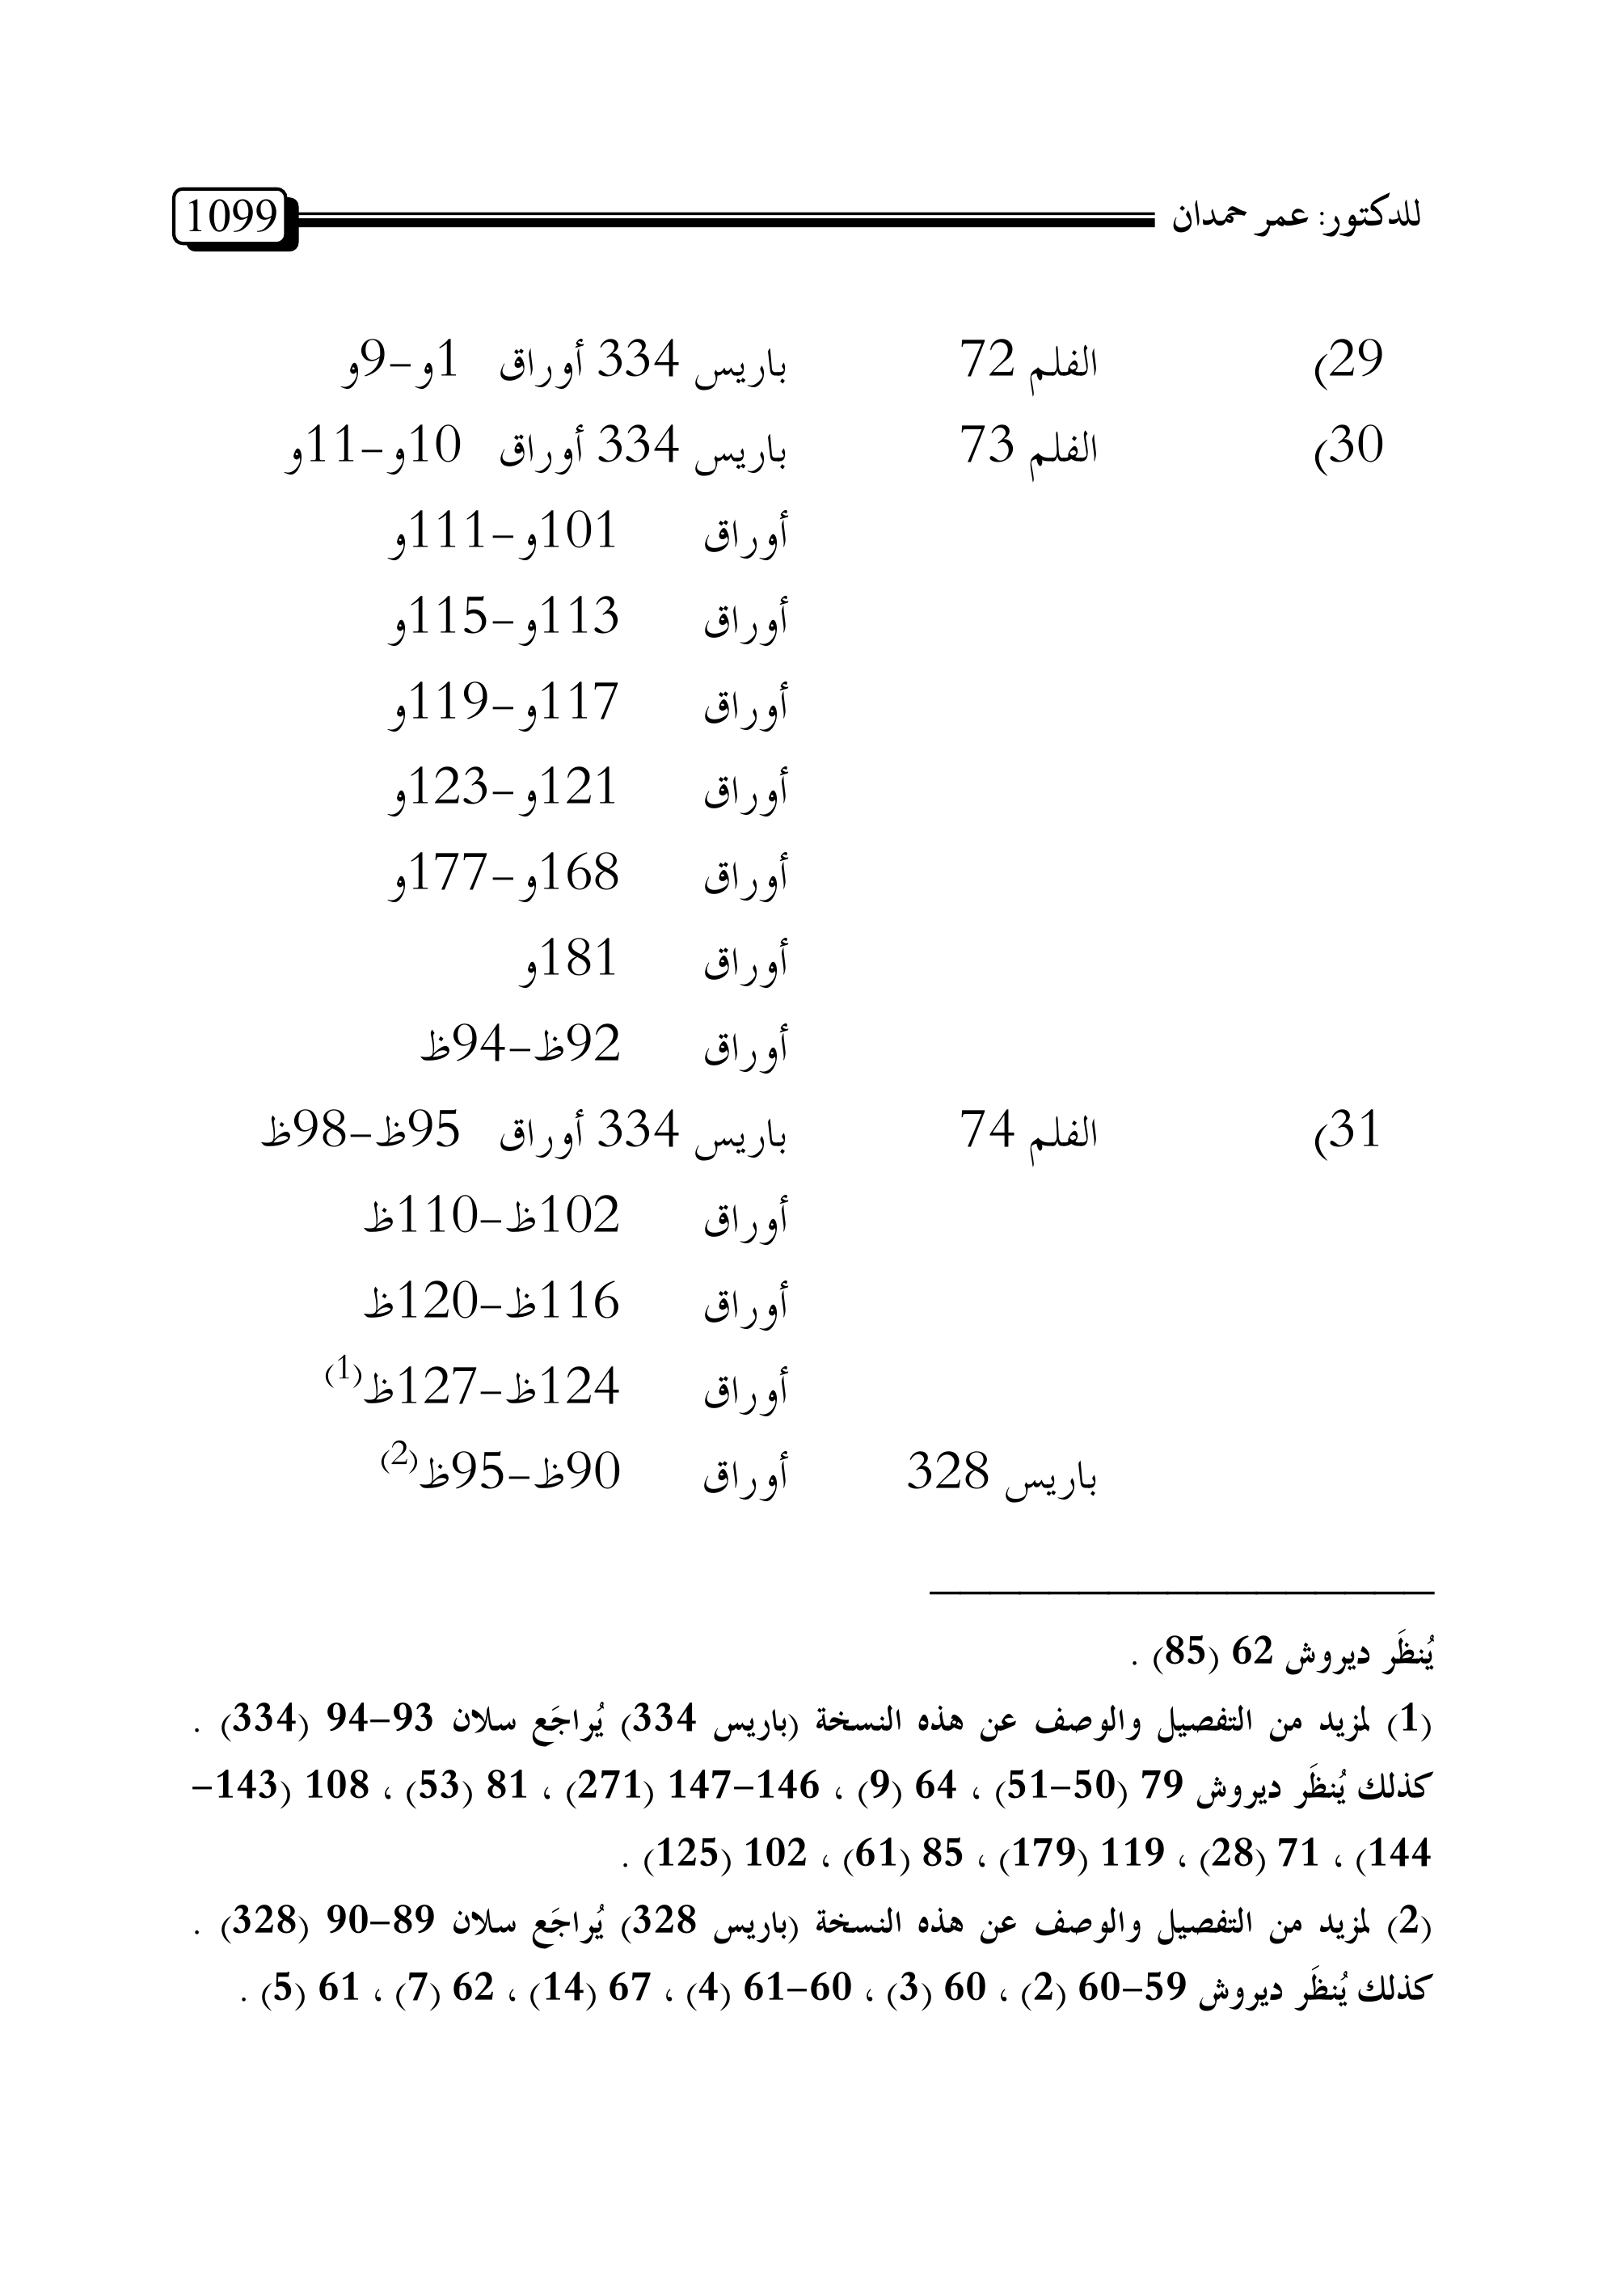 للدكتور: عمر حمدان 1099
29) الفلم 72 باريس 334 أوراق 1و–9و
30) الفلم 73 باريس 334 أوراق 10و–11و
أوراق 101و–111و
أوراق 113و–115و
أوراق 117و–119و
أوراق 121و–123و
أوراق 168و–177و
أوراق 181و
أوراق 92ظ–94ظ
31) الفلم 74 باريس 334 أوراق 95ظ–98ظ
أوراق 102ظ–110ظ
أوراق 116ظ–120ظ
أوراق 124ظ–127ظ(1)
باريس 328 أوراق 90ظ–95ظ(2)
يُنظَر ديروش 62 (85) .
(1) لمزيد من التفصيل والوصف عن هذه النسخة (باريس 334) يُراجَع سلان 93–94 (334) .
كذلك يُنظَر ديروش 79 (50–51) ، 64 (9) ، 146–147 (271) ، 81 (53) ، 108 (143–
144) ، 71 (28) ، 119 (179) ، 85 (61) ، 102 (125) .
(2) لمزيد من التفصيل والوصف عن هذه النسخة (باريس 328) يُراجَع سلان 89–90 (328) .
كذلك يُنظَر ديروش 59–60 (2) ، 60 (3) ، 60–61 (4) ، 67 (14) ، 62 (7) ، 61 (5) .